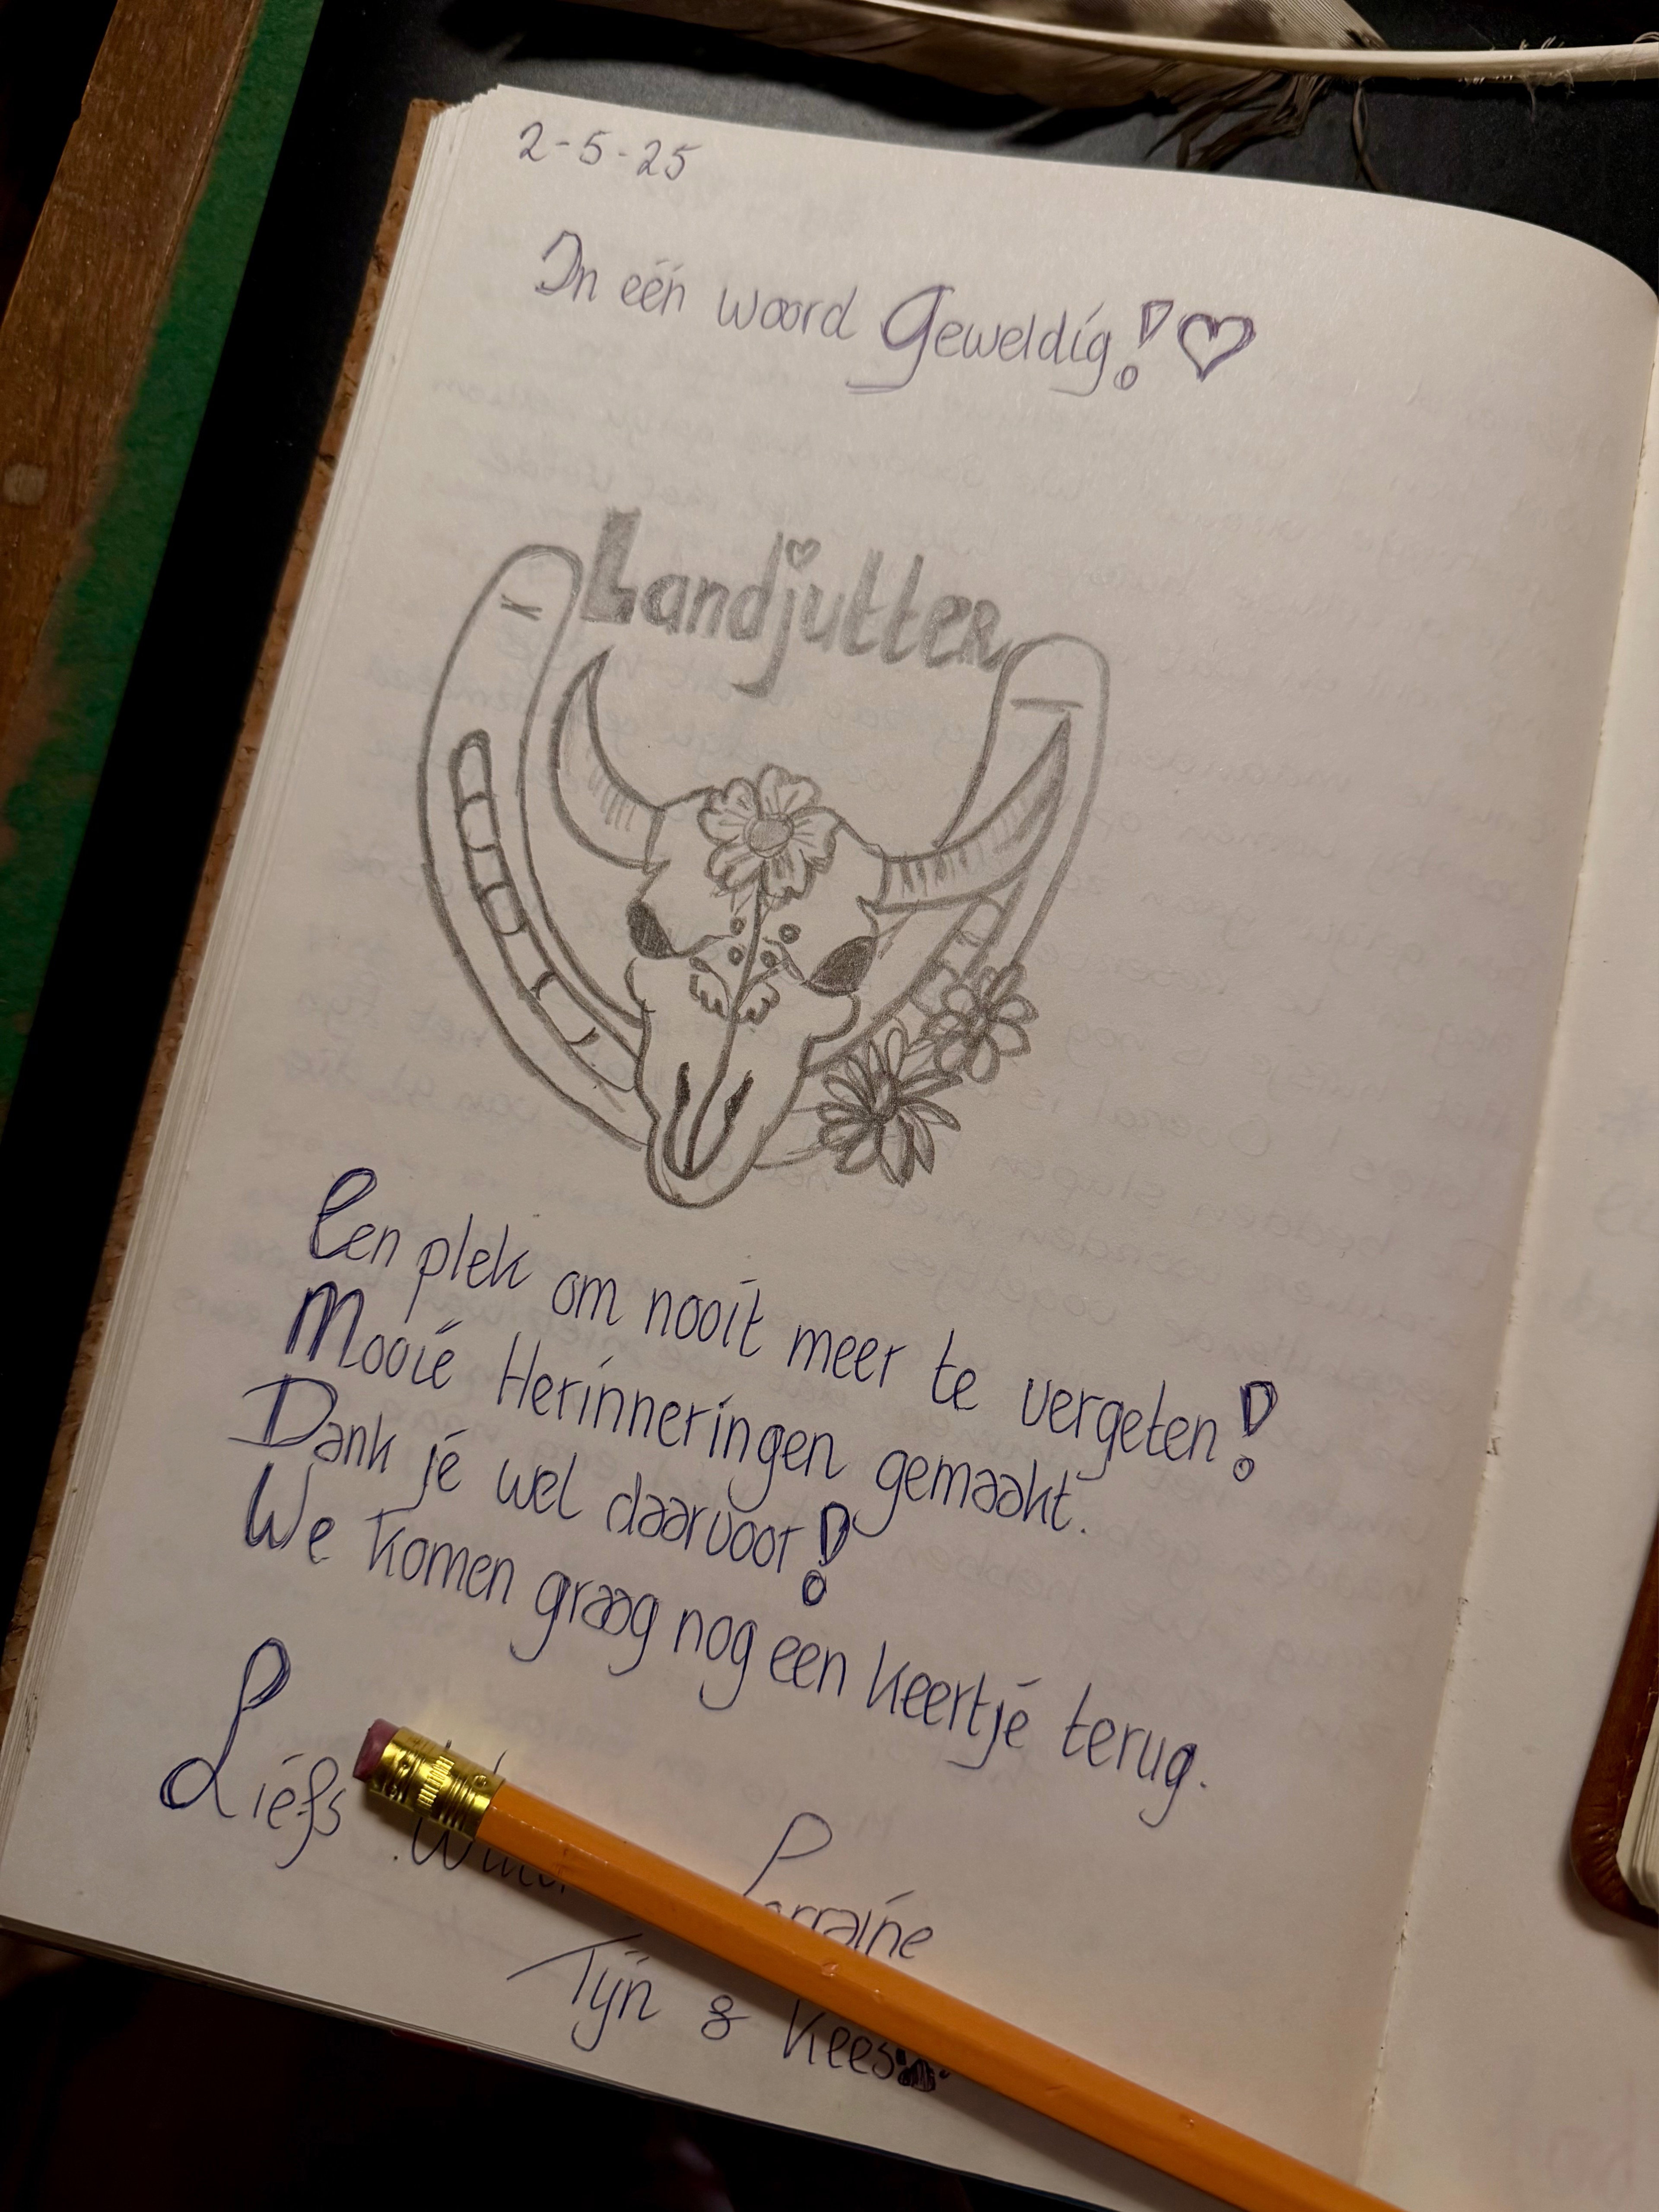 2-5-25
In één woord Geweldig!
Landjutter
Een plek om nooit meer te vergeten!
Mooie Herinneringen gemaakt.
Dank je wel daarvoor!
We komen graag nog een keertje terug.
Liefs
Lorraine
Tijn & Kees